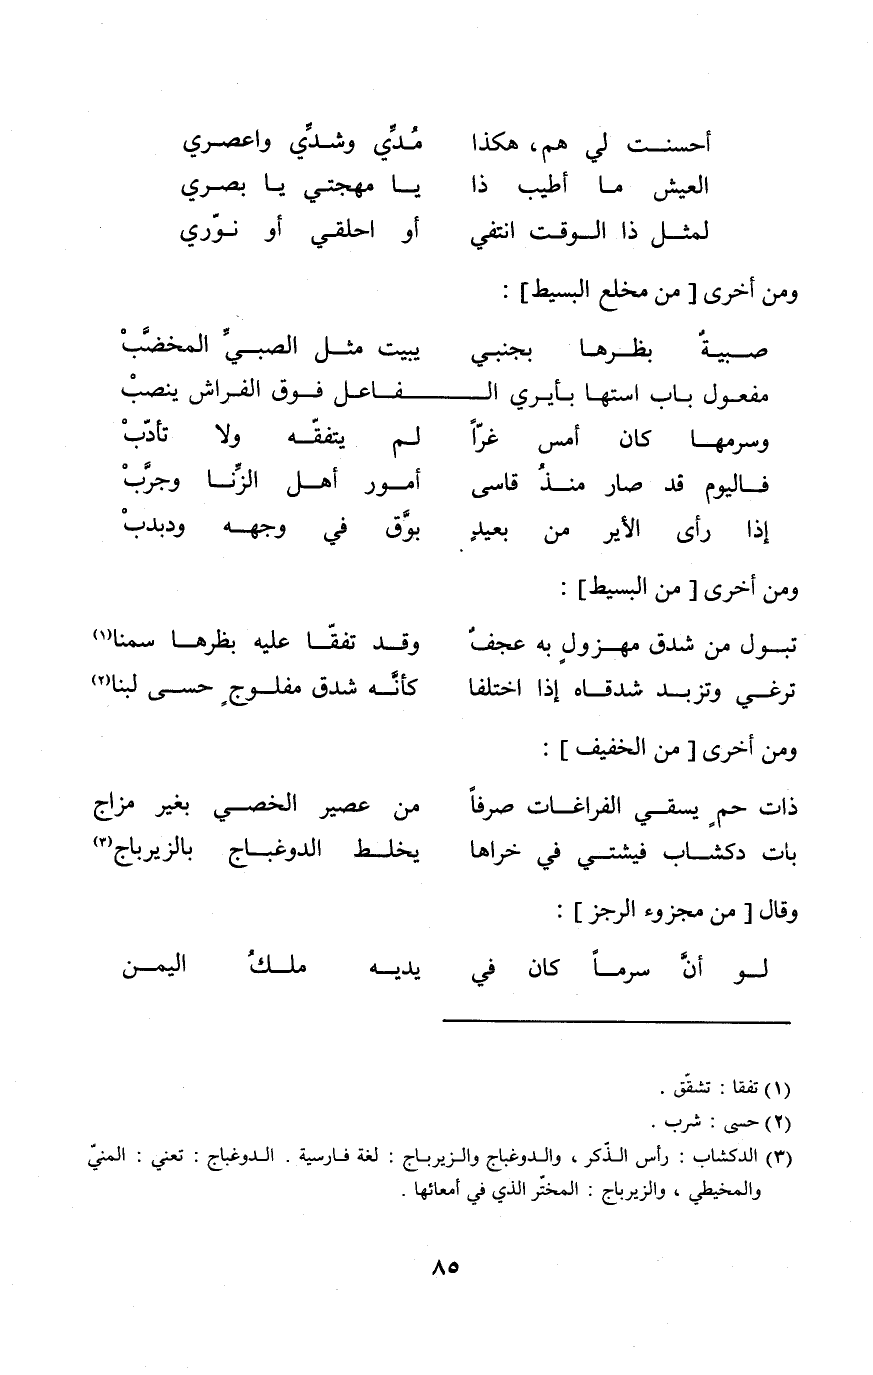 أحسنت لي هم، هكذا مُدِّي وشدِّي واعصري
العيش ما أطيب ذا يا مهجتي يا بصري
لمثل ذا الوقت انتفي أو احلقي أو نوّري
ومن أخرى [ من مخلع البسيط] :
صبيةٌ بظرها بجنبي يبيت مثل الصبيِّ المخضَّبْ
مفعول باب استها بأيري الـفاعل فوق الفراش ينصبْ
وسرمها كان أمس غرّاً لم يتفقّه ولا تأدّبْ
فاليوم قد صار منذُ قاسى أمور أهل الزِّنا وجرَّبْ
إذا رأى الأير من بعيدٍ بوَّق في وجهه ودبدبْ
ومن أخرى [ من البسيط] :
تبول من شدق مهزولٍ به عجفٌ وقد تفقّا عليه بظرها سمنا(١)
ترغي وتزبد شدقاه إذا اختلفا كأنَّه شدق مفلوجٍ حسى لبنا(٢)
ومن أخرى [ من الخفيف ] :
ذات حمٍ يسقي الفراغات صرفاً من عصير الخصي بغير مزاج
بات دكشاب فيشتي في خراها يخلط الدوغباج بالزيرباج(٣)
وقال [ من مجزوء الرجز ] :
لو أنَّ سرماً كان في يديه ملكُ اليمن
(١) تفقا : تشقّق .
(٢) حسى : شرب .
(٣) الدكشاب : رأس الذّكر ، والدوغباج والزيرباج : لغة فارسية . الدوغباج : تعني : المنيّ
والمخيطي ، والزيرباج : المختّر الذي في أمعائها .
٨٥